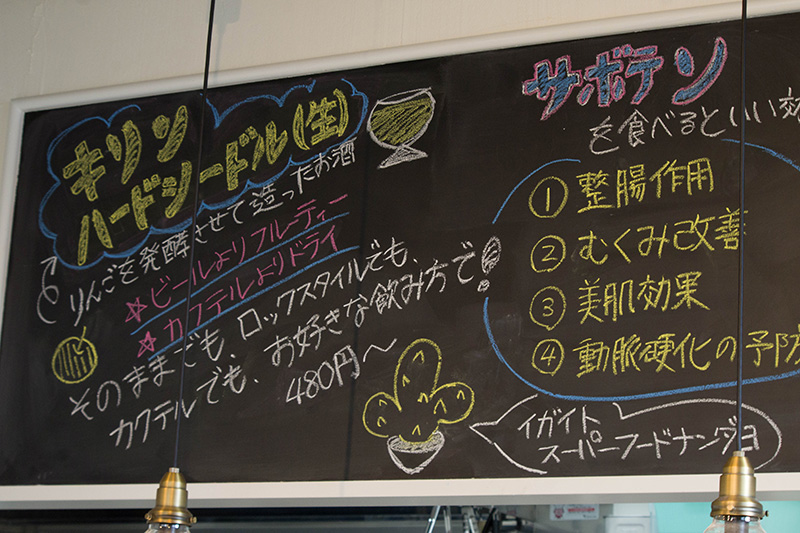 キリン
ハードシードル(生)
りんごを発酵させて造ったお酒
☆ビールよりフルーティー
☆カクテルよりドライ
そのままでも、ロックスタイルでも、
カクテルでも、お好きな飲み方で!
480円〜
サボテン
を食べるといい効
① 整腸作用
② むくみ改善
③ 美肌効果
④ 動脈硬化の予防
イガイト
スーパーフードナンダヨ